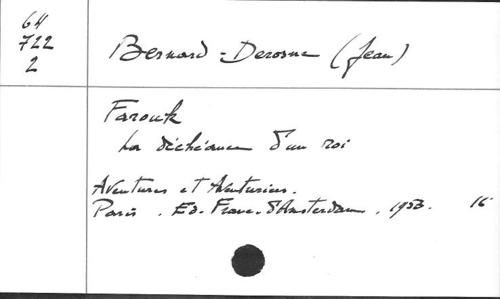 64
722
2
Bernard-Derosne (Jean)
Farouk
La déchéance d'un roi
Aventures et Aventuriers.
Paris. Ed. Franc. d'Amsterdam. 1953. 16°